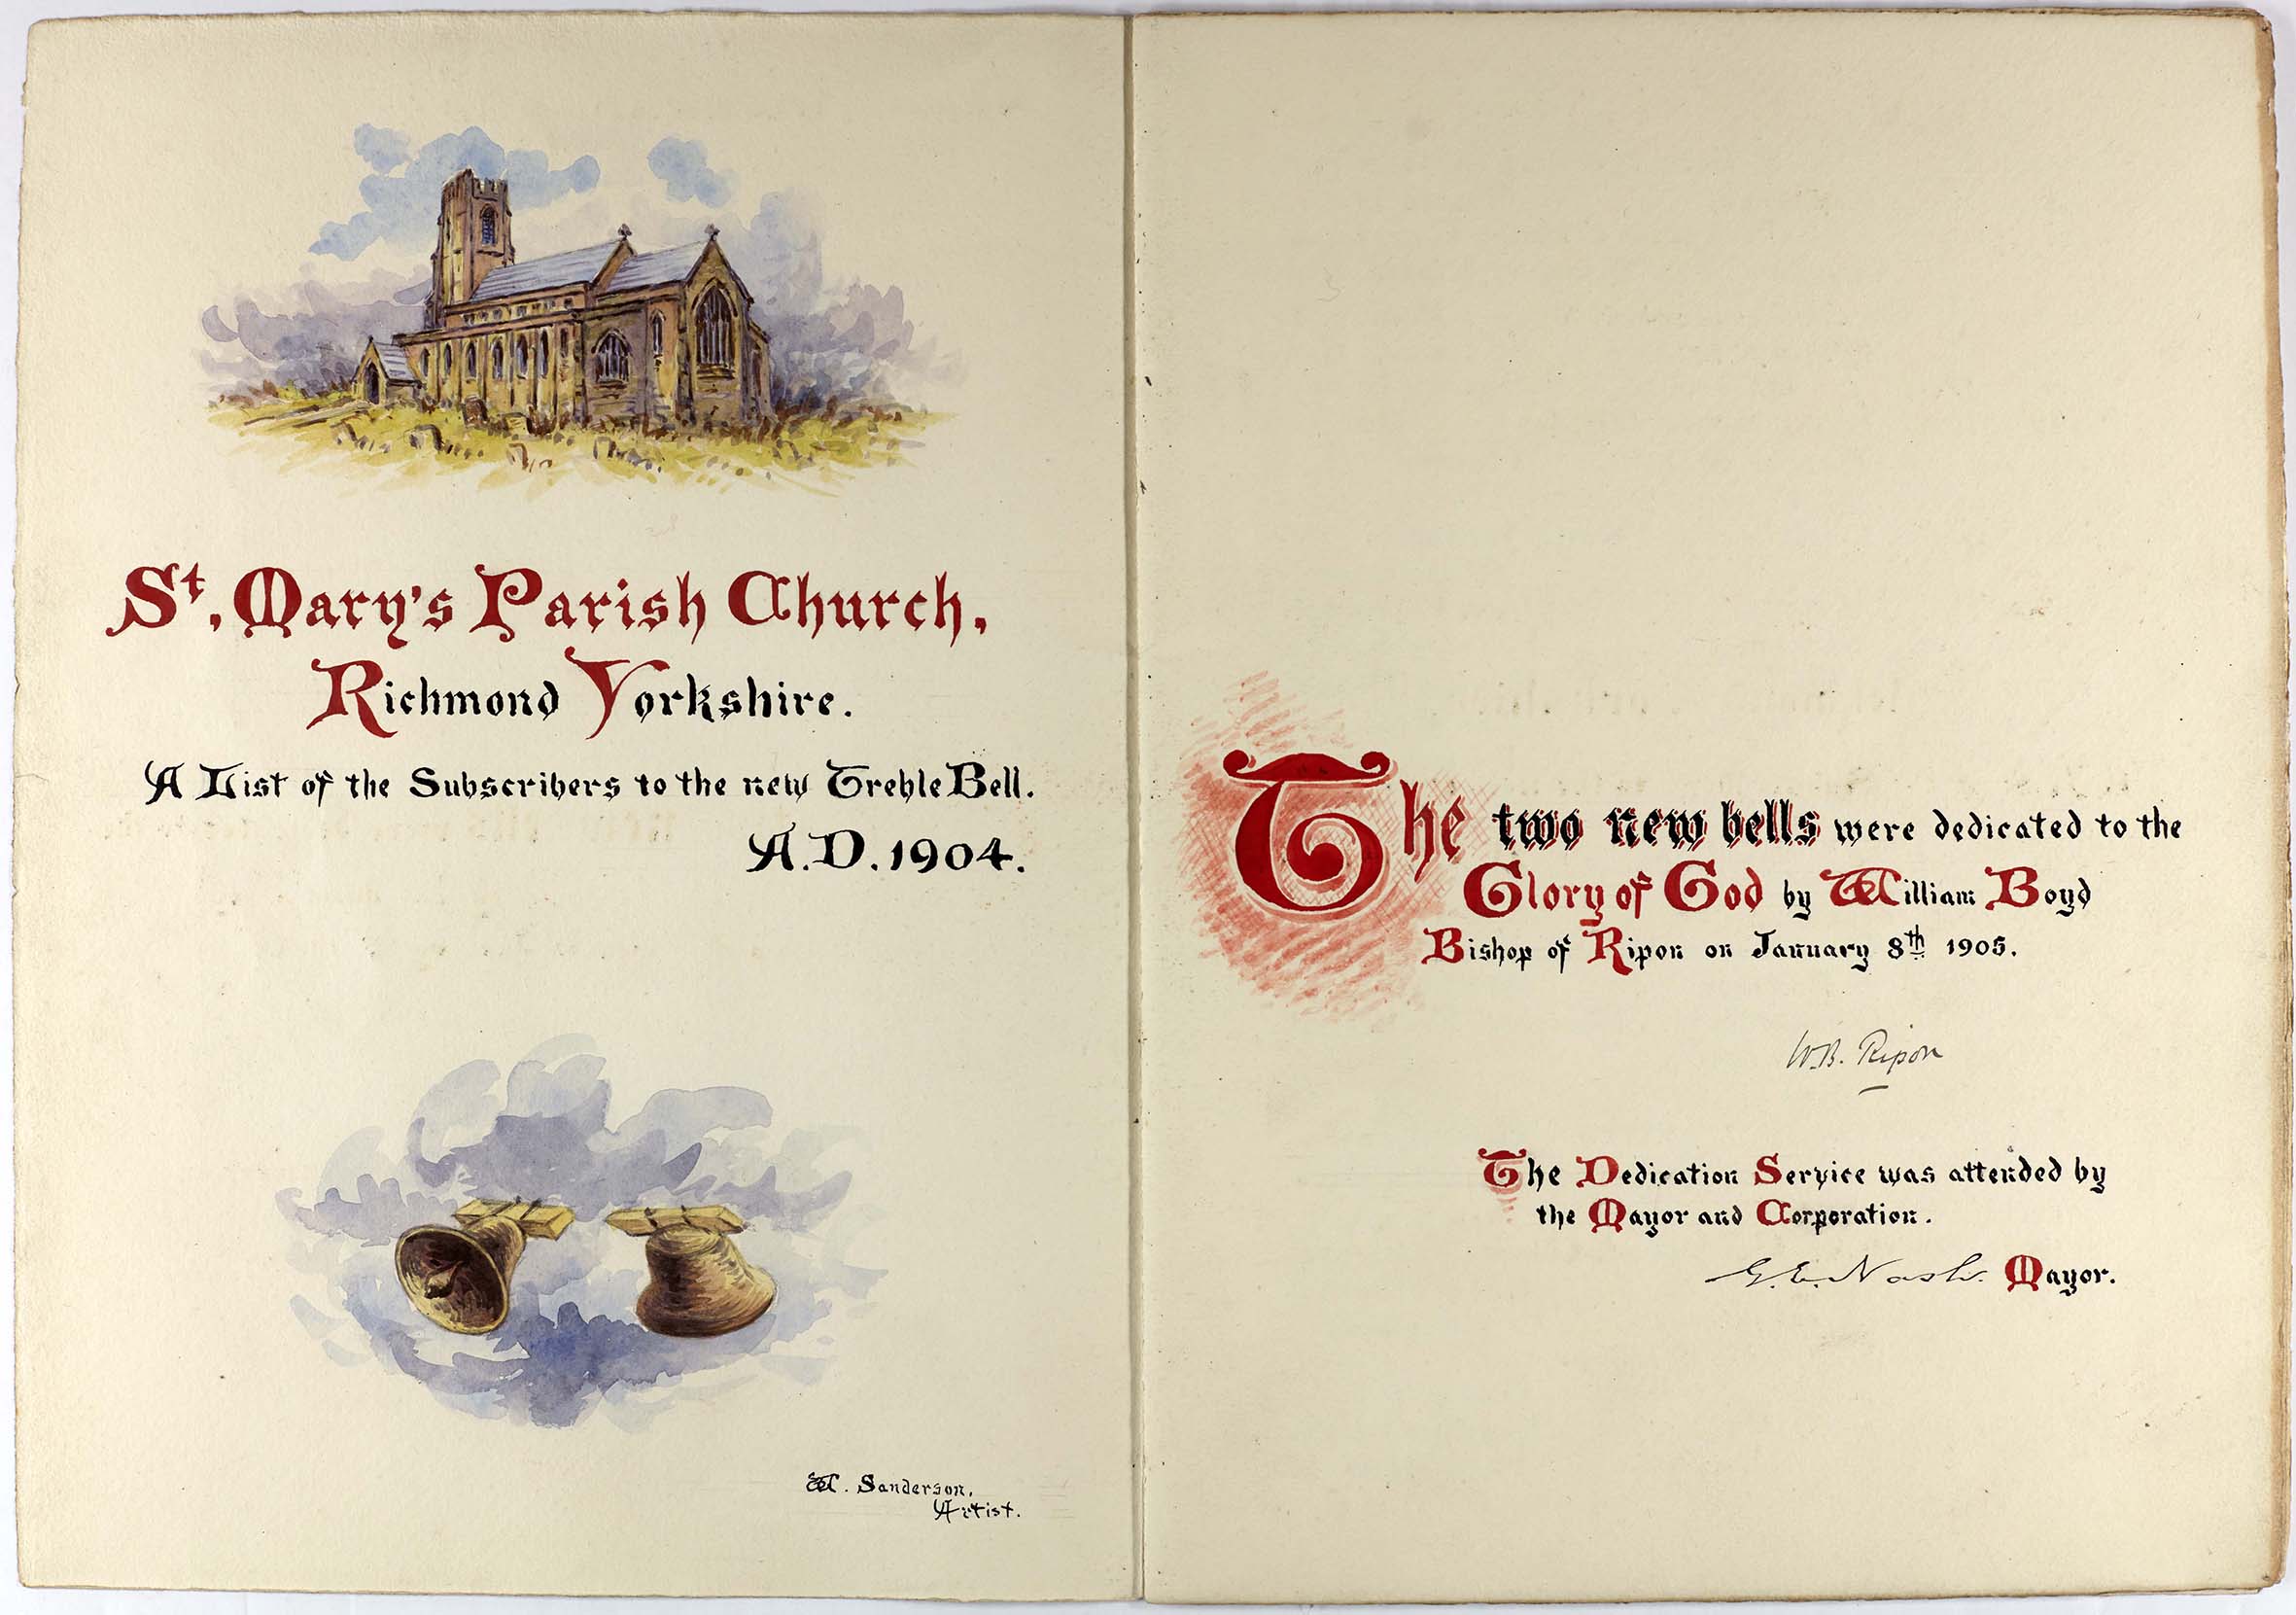 St. Mary's Parish Church,
Richmond Yorkshire.
A List of the Subscribers to the new Treble Bell.
A.D. 1904.
W. Sanderson,
Artist.
The two new bells were dedicated to the
Glory of God by William Boyd
Bishop of Ripon on January 8th 1905.
W.B. Ripon
The Dedication Service was attended by
the Mayor and Corporation.
G. E. Nash. Mayor.